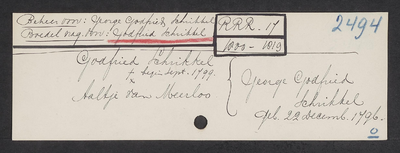 Beheer voor: George Godfried Schrikkel
Boedel v. Godfried Schrikkel
RRR. 17
1800 - 1819
2494
Godfried Schrikkel
+ begin Sept. 1799.
x
Aaltje van Meerloo
George Godfried
Schrikkel
geb. 22 Decemb. 1796.
0